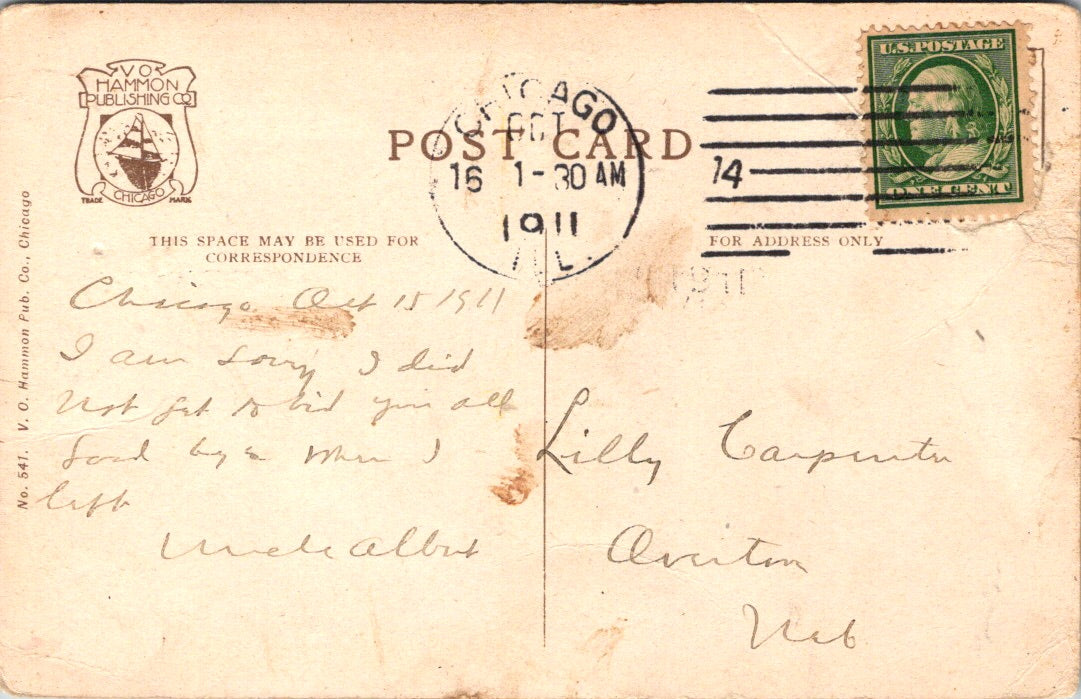 V O
HAMMON
PUBLISHING CO
CHICAGO
TRADE MARK
POST CARD
CHICAGO
OCT
16 1-30 AM
1911
ILL.
14
U.S. POSTAGE
ONE CENT
THIS SPACE MAY BE USED FOR
CORRESPONDENCE
FOR ADDRESS ONLY
No. 541. V. O. Hammon Pub. Co., Chicago
Chicago Oct 15 1911
I am sorry I did
not get to bid you all
good bye when I
left
Uncle Albert
Lilly Carpenter
Overton
Neb